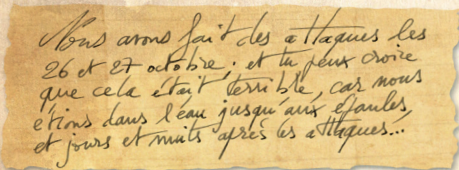 Nous avons fait des attaques les
26 et 27 octobre ; et tu peux croire
que cela était terrible, car nous
étions dans l'eau jusqu'aux épaules,
et jours et nuits après les attaques...